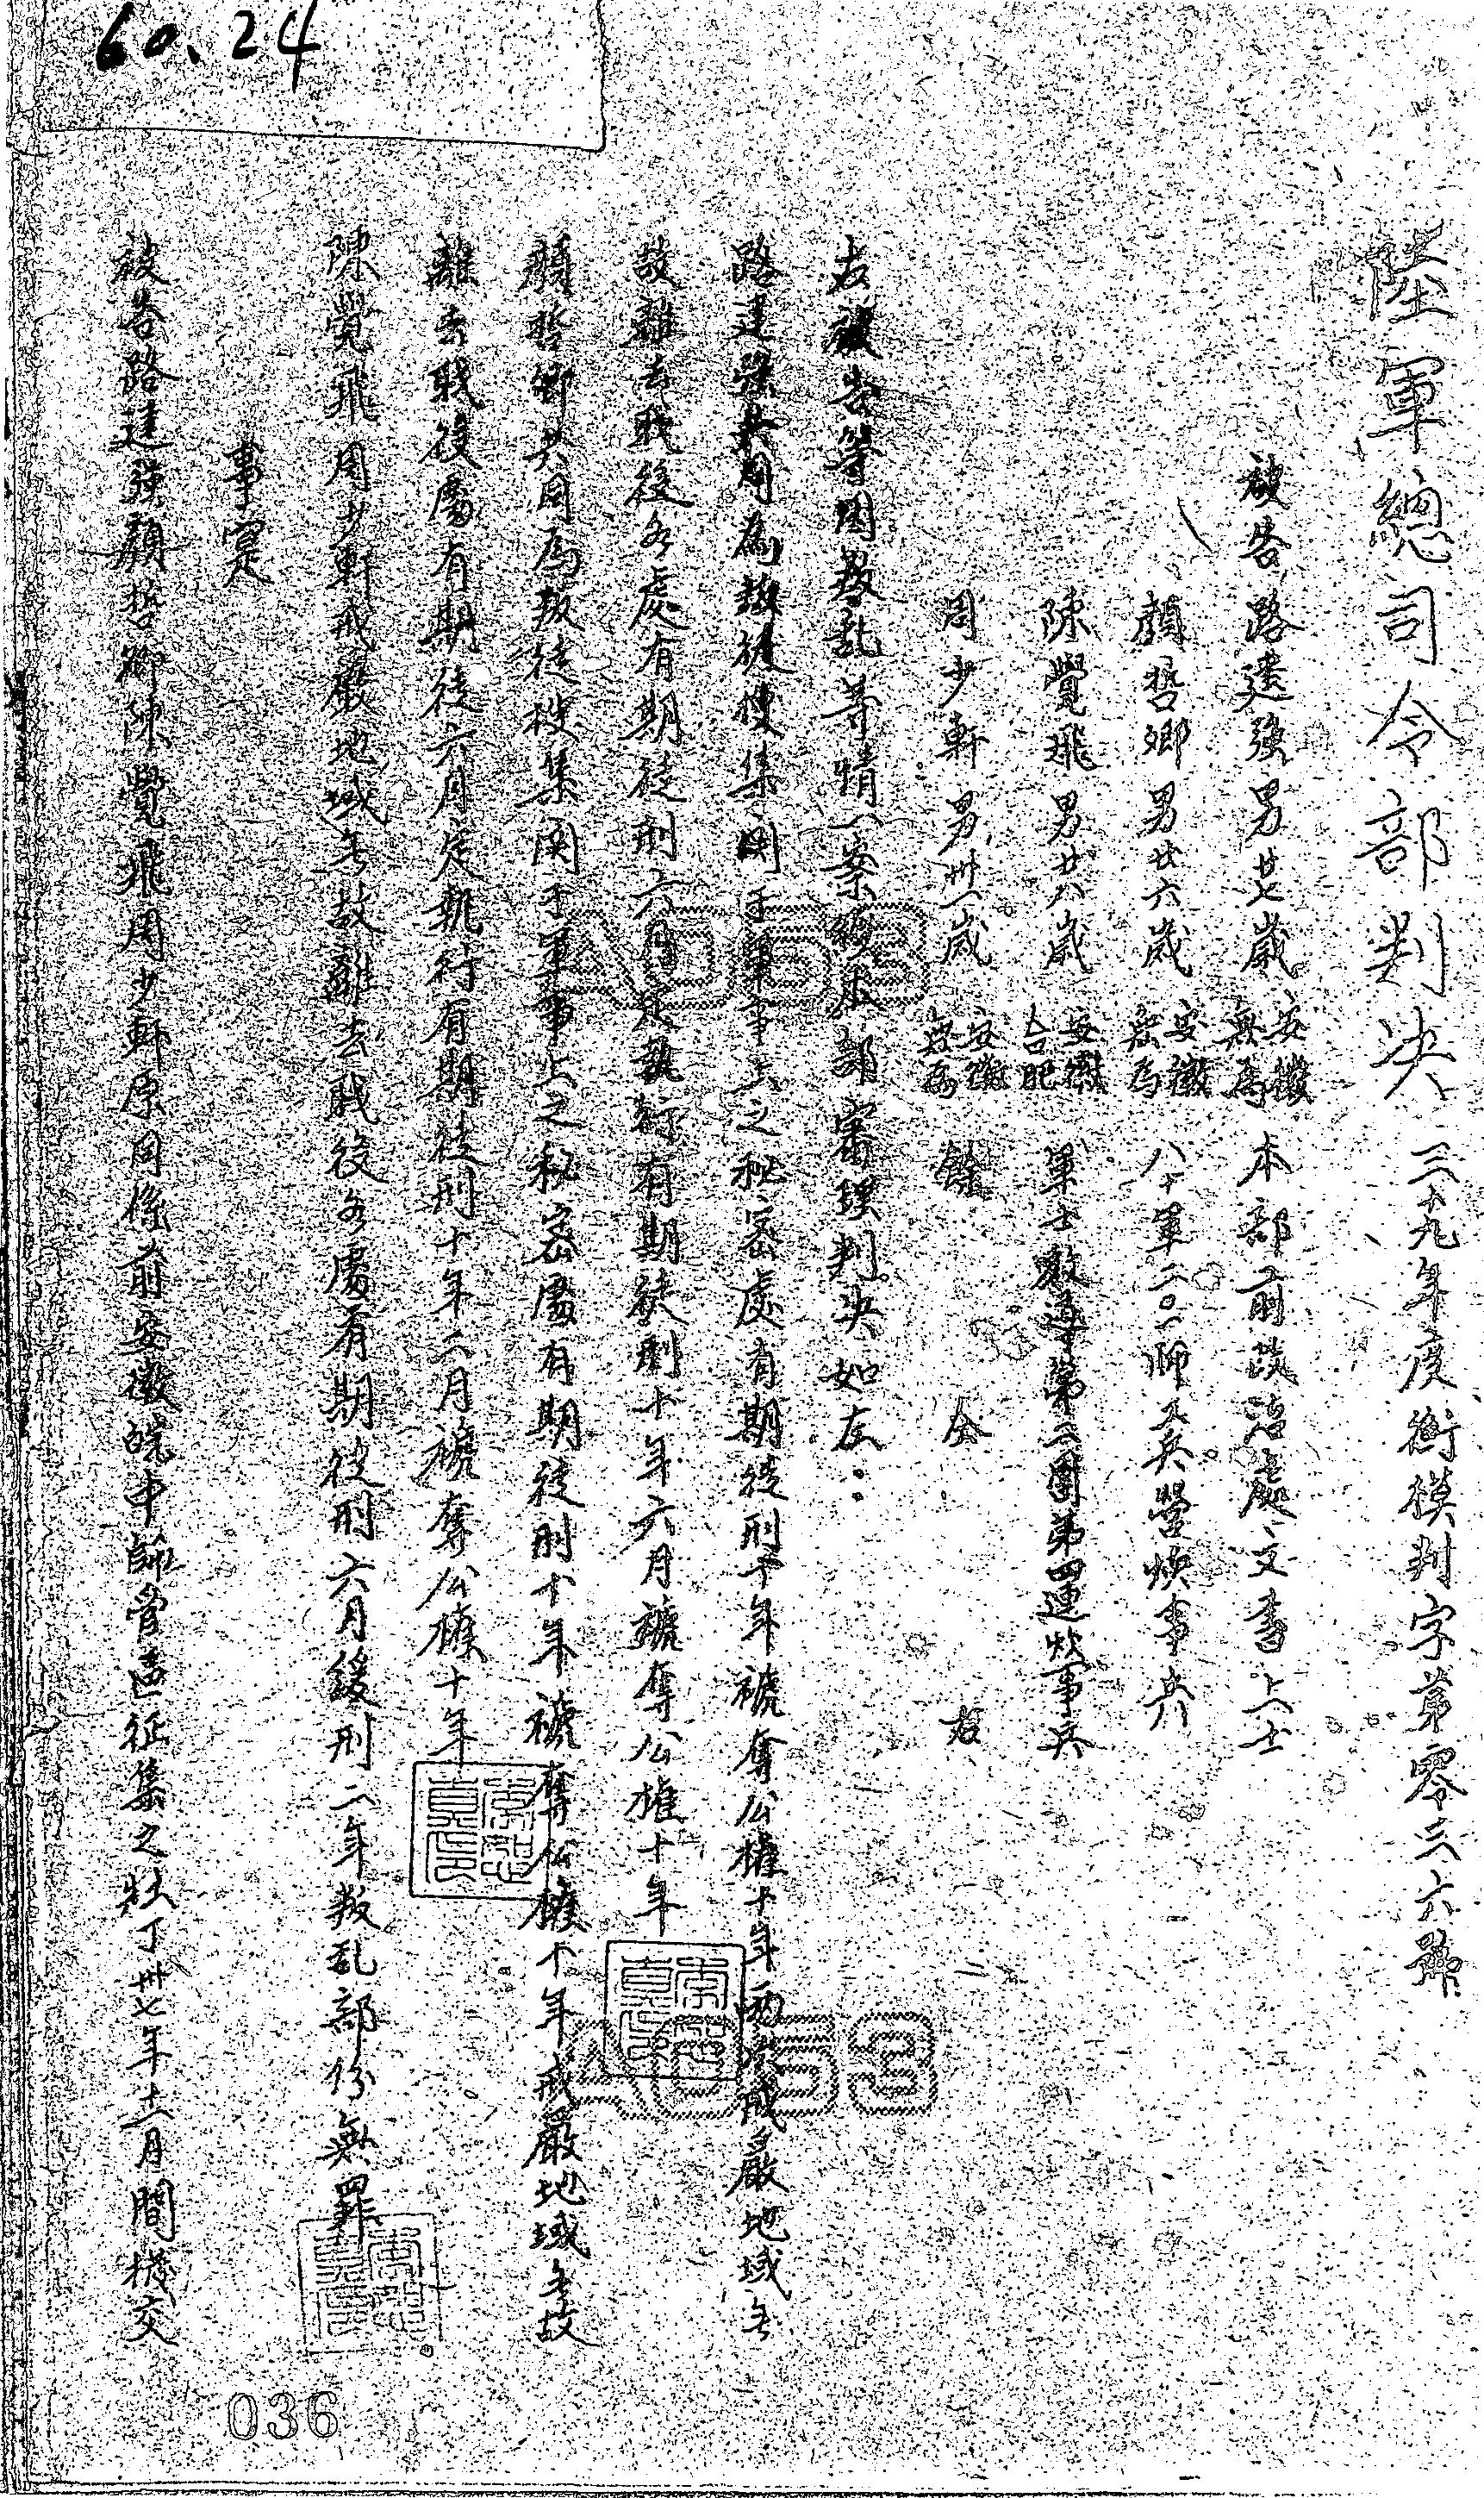 60.24
陸軍總司令部判決 三十九年度衡模判字第零三六號
被告 路建強 男 廿七歲 安徽無為 本部前諜潛處文書上士
顏哲卿 男 廿六歲 安徽無為 八十軍二〇一師工兵營炊事兵
陳覺飛 男 廿八歲 安徽合肥 軍士教導第二團第四連炊事兵
周少軒 男 卅一歲 安徽無為 餘 仝 右
右被告等因叛乱等情一案經本部審理判決如左：
路建強共同為叛徒搜集関于軍事上之秘密處有期徒刑十年褫奪公權十年両次戒嚴地域無
故離去職役各處有期徒刑六月定執行有期徒刑十年六月褫奪公權十年
顏哲卿共同為叛徒搜集関于軍事上之秘密處有期徒刑十年褫奪公權十年戒嚴地域無故
離去職役處有期徒刑六月定執行有期徒刑十年二月褫奪公權十年
陳覺飛周少軒戒嚴地域無故離去職役各處有期徒刑六月緩刑二年叛乱部份無罪
事實
被告路建強顏哲卿陳覺飛周少軒原同係前安徽皖中師管區征集之壯丁卅七年十一月間撥交
A053
A053
036